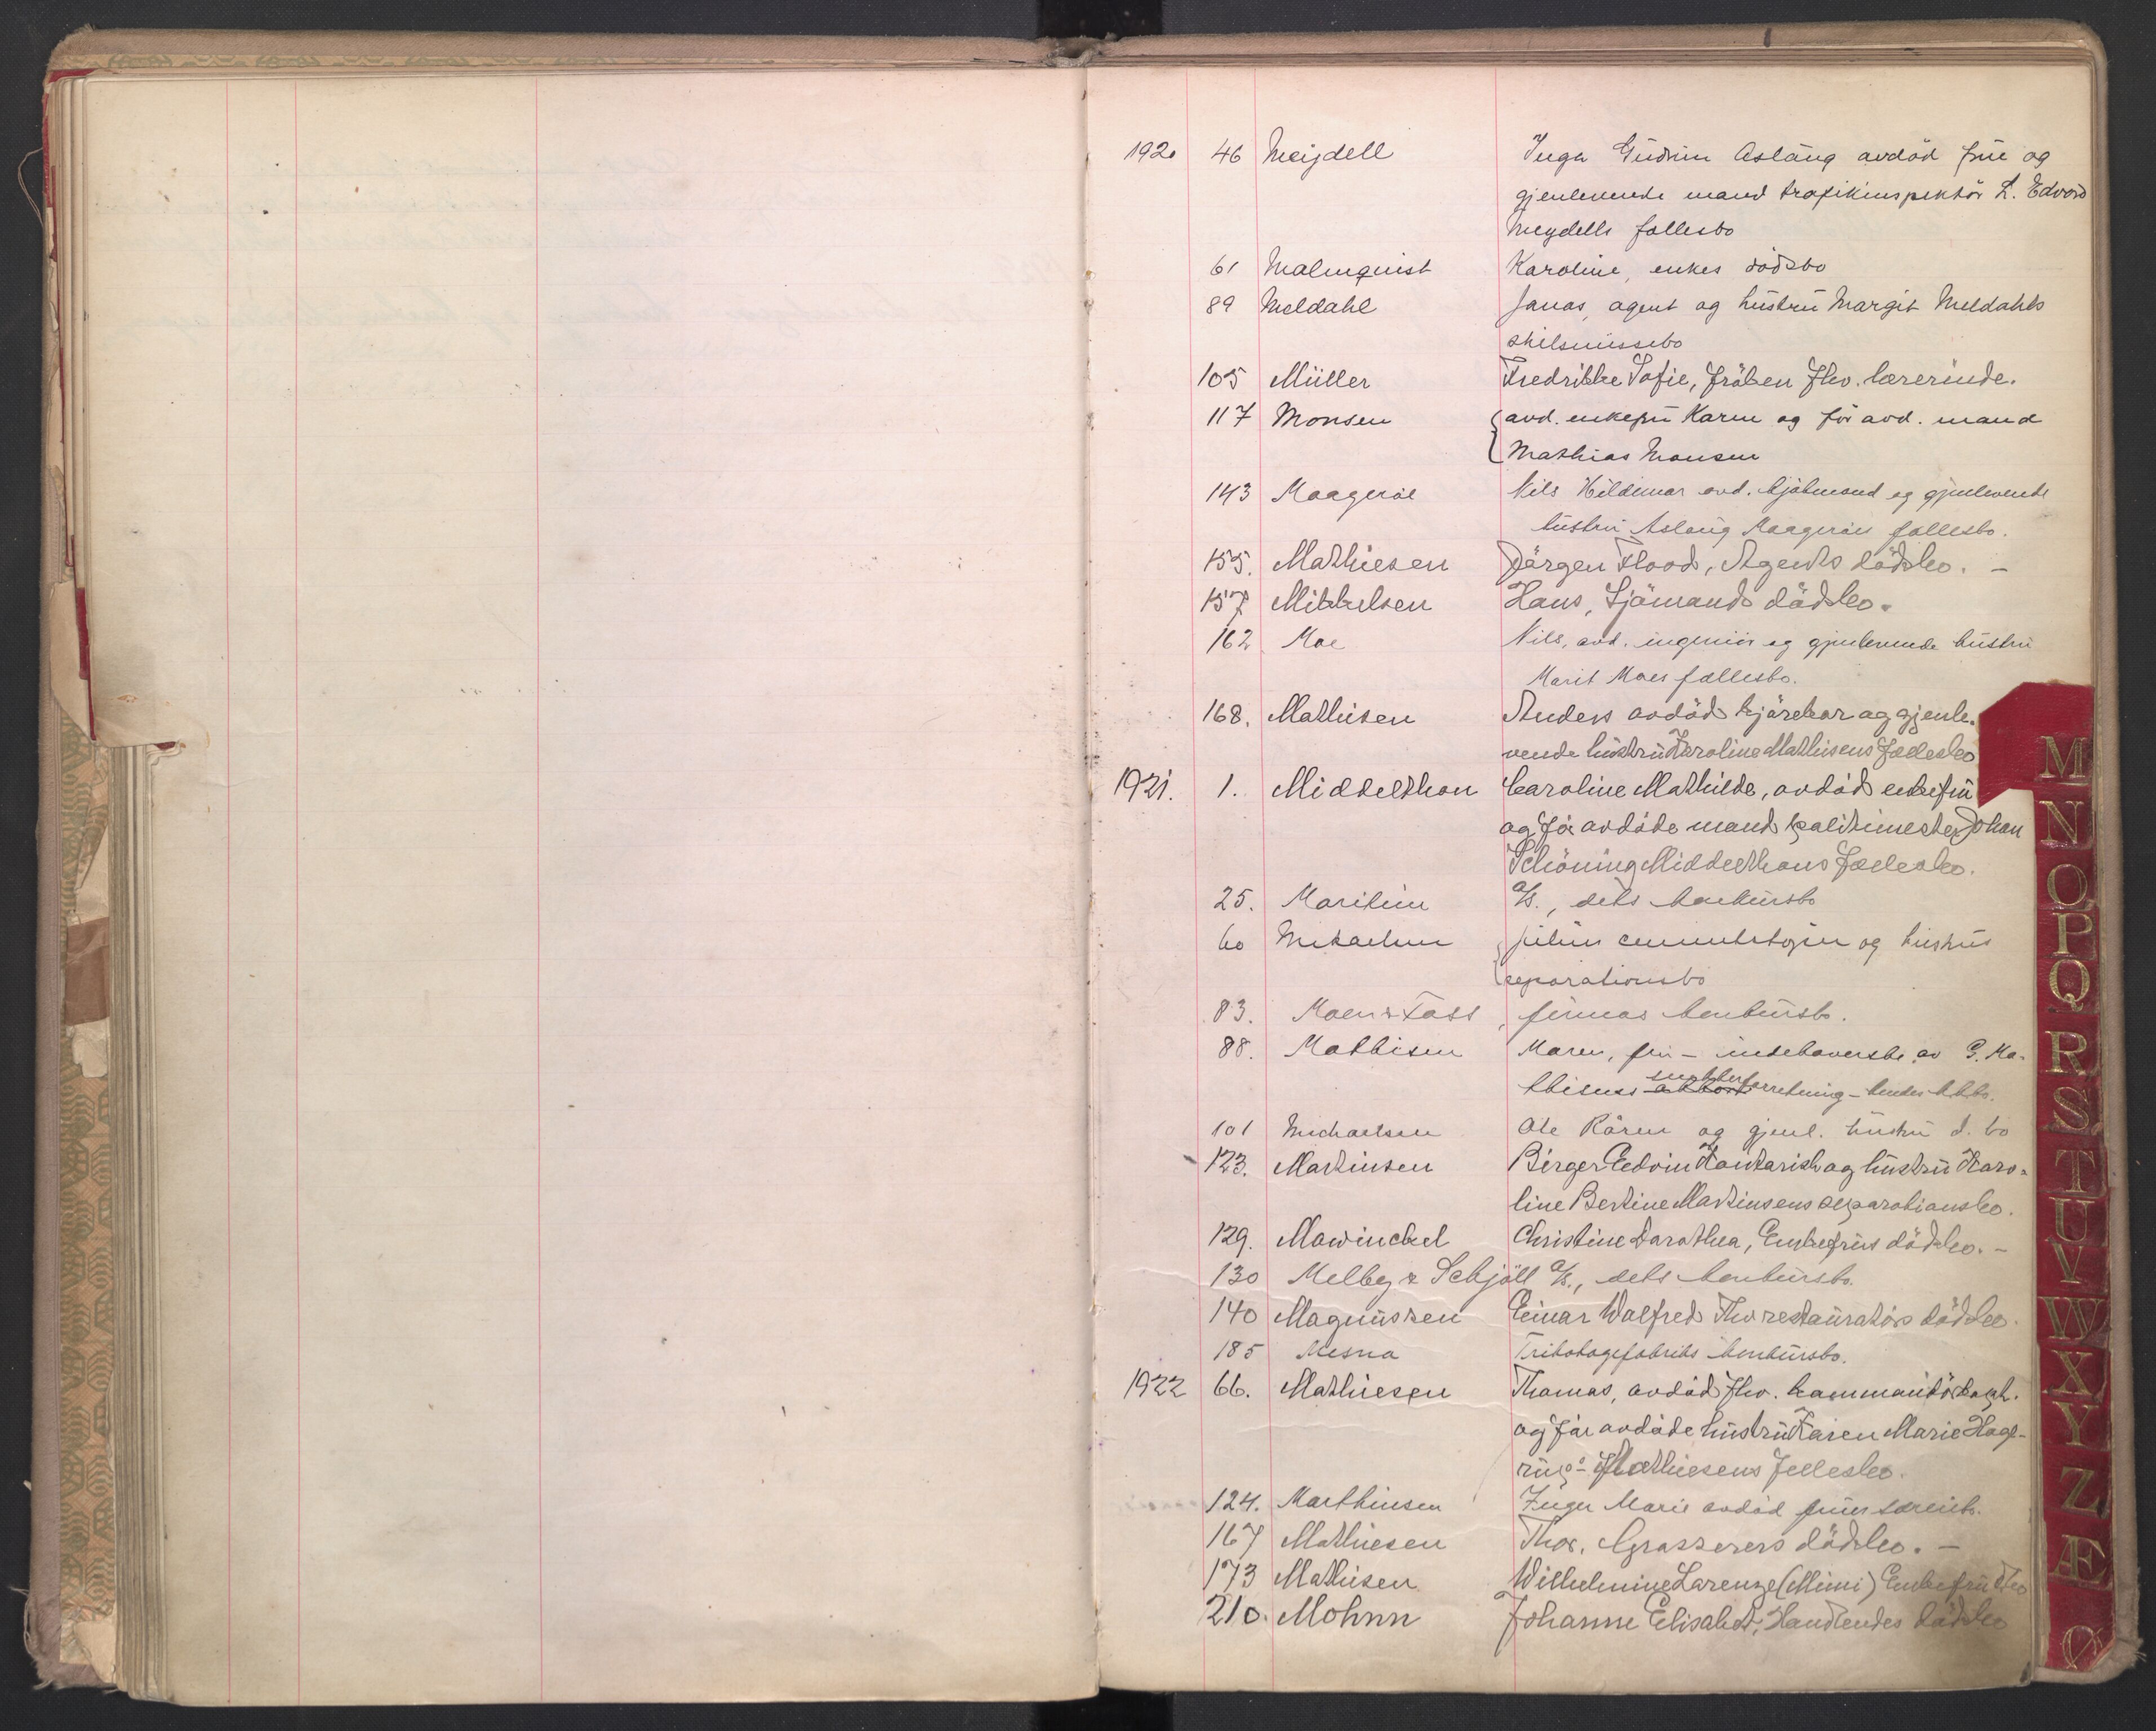 1920 46 Meijdell Inga Gudrun Aslaug avdöd frue og
gjenlevende mand trafikinspektör L. Edvard
Meydells fallesbo
61 Malmquist Karoline, enkes dödsbo
89 Meldahl Jonas, agent og hustru Margit Meldahls
skilsmissebo
105 Müller Fredrikke Sofie, fröken fhv. lærerinde.
117 Monsen avd. enkefru Karen og för avd. mand
Mathias Monsen
143 Maagerøe Nils Hildimar avd. sjömand og gjenlevende
hustru Aslaug Maagerøes fællesbo.
155. Mathiesen Jörgen Flood, Agents dödsbo. –
157 Mikkelsen Hans, Sjömands dödsbo.
162 Moe Nils, avd. ingeniör og gjenlevende hustru
Marit Moes fællesbo.
168. Mathisen Anders avdöd kjörekar og gjenle-
vende hustru Karoline Mathisens Fællesbo
1921. 1. Middelthon Caroline Mathilde, avdöd enkefru
og för avdöde mand politimester Johan
Schöning Middelthons Fællesbo.
25. Maritim A/S., dets konkursbo
60 Mikaelsen og hustrus
separationsbo
83. Moen & Foss, firmas konkursbo.
88. Mathisen Maren, fru – indehaverske av G. Ma-
thisens forretning – hendes
101 Michaelsen Ole Rören og gjenl. hustru d. bo
123. Martinsen Birger Edvin Kontorist og hustru Karo-
line Bertine Martinsens separationsbo.
129. Mowinckel Christine Dorothea, Enkefrus dödsbo. –
130 Melby & Schjöll A/S., dets konkursbo.
140 Magnussen Einar Walfred Fhv restauratörs dödsbo.
185 Mesna Trikotagefabriks konkursbo.
1922 66. Mathiesen Thomas, avdöd fhv. kommandörkapt.
og för avdöde hustru Karen Marie Hage-
rup-Mathiesens Fellesbo.
124. Marthinsen Inger Marie avdöd frues særeiebo.
167 Mathiesen Thor, Grosserers dödsbo. –
173 Mathisen Wilhelmine Lorenze (Mimi) Enkefru dsbo
210. Mohnn Johanne Elisabet, Handlendes dödsbo
M
N
O
P
Q
R
S
T
U
V
W
X
Y
Z
Æ
Ø